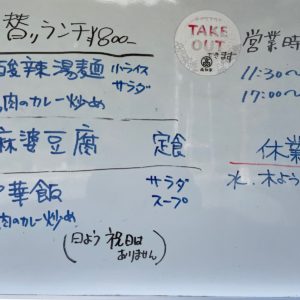 替りランチ¥800-
酸辣湯麺 小ライス
サラダ
肉のカレー炒め
麻婆豆腐 定食
中華飯 サラダ
スープ
肉のカレー炒め
(日よう祝日は
ありません)
TAKE
OUT
営業時
11:30〜
17:00〜
休業
水.木よう